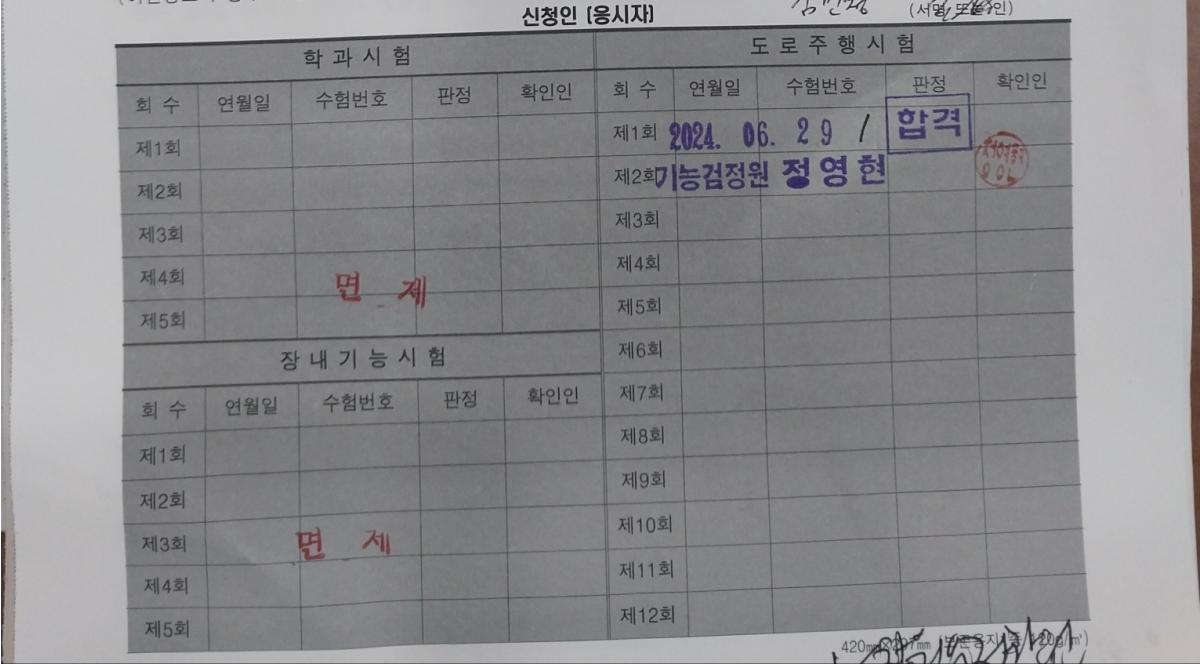 신청인 (응시자)
(서명 또는 인)
학 과 시 험
회 수 연월일 수험번호 판정 확인인
제1회
제2회
제3회
제4회
제5회
면 제
장 내 기 능 시 험
회 수 연월일 수험번호 판정 확인인
제1회
제2회
제3회
제4회
제5회
면 제
도 로 주 행 시 험
회 수 연월일 수험번호 판정 확인인
제1회 2024. 06. 29 / 합격
제2회 기능검정원 정영현
제3회
제4회
제5회
제6회
제7회
제8회
제9회
제10회
제11회
제12회